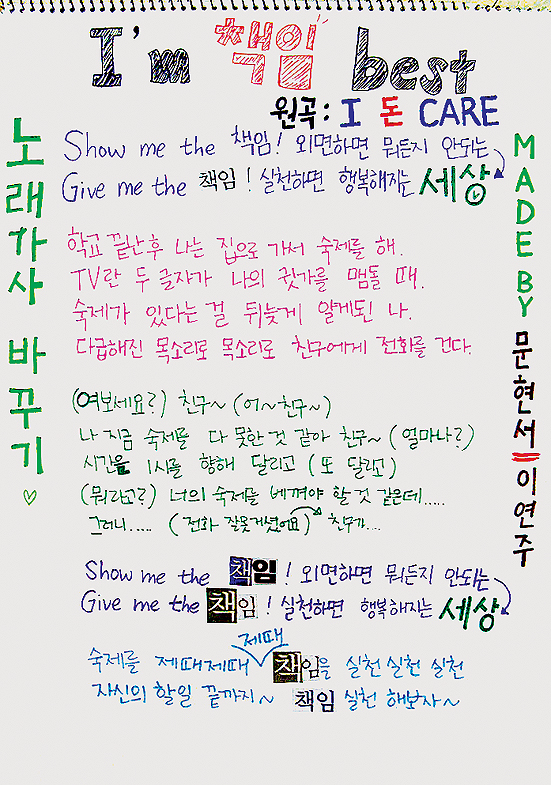 I'm 책임 best
원곡: I 돈 CARE
노래가사 바꾸기♡
MADE BY 문현서 = 이연주
Show me the 책임! 외면하면 뭐든지 안되는
Give me the 책임! 실천하면 행복해지는 세상
학교 끝난후 나는 집으로 가서 숙제를 해.
TV란 두 글자가 나의 귓가를 맴돌 때.
숙제가 있다는 걸 뒤늦게 알게된 나.
다급해진 목소리로 목소리로 친구에게 전화를 건다.
(여보세요?) 친구~ (어~친구~)
나 지금 숙제를 다 못한 것 같아 친구~ (얼마나?)
시간은 1시를 향해 달리고 (또 달리고)
(뭐라고?) 너의 숙제를 베껴야 할 것 같은데.....
그러니..... (전화 잘못거셨어요) 친구가...
Show me the 책임! 외면하면 뭐든지 안되는
Give me the 책임! 실천하면 행복해지는 세상
숙제를 제때제때 제때 책임을 실천 실천 실천
자신의 할일 끝까지~ 책임 실천 해보자~